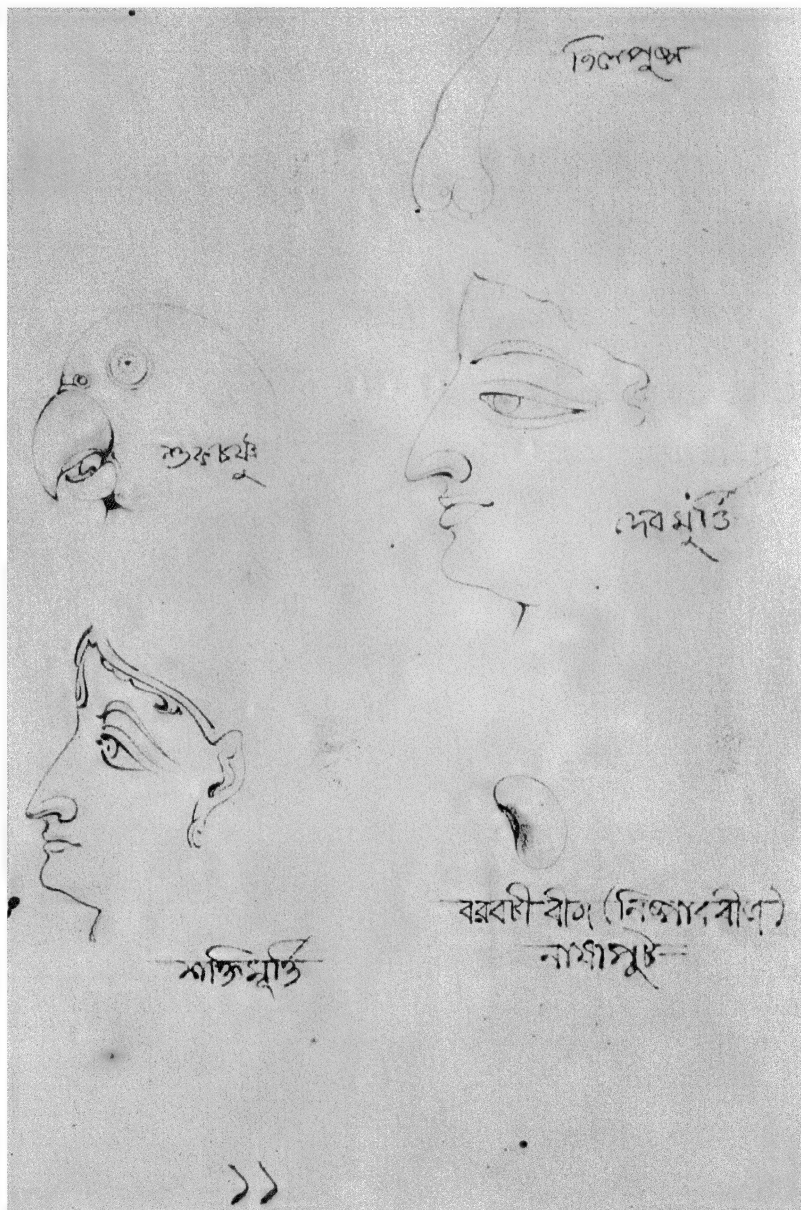 তিলপুষ্প
শুকচঞ্চু
দেবমূর্ত্তি
বরবটী বীজ (নিষ্পাববীজ)
নাসাপুট
শক্তিমূর্ত্তি
১১